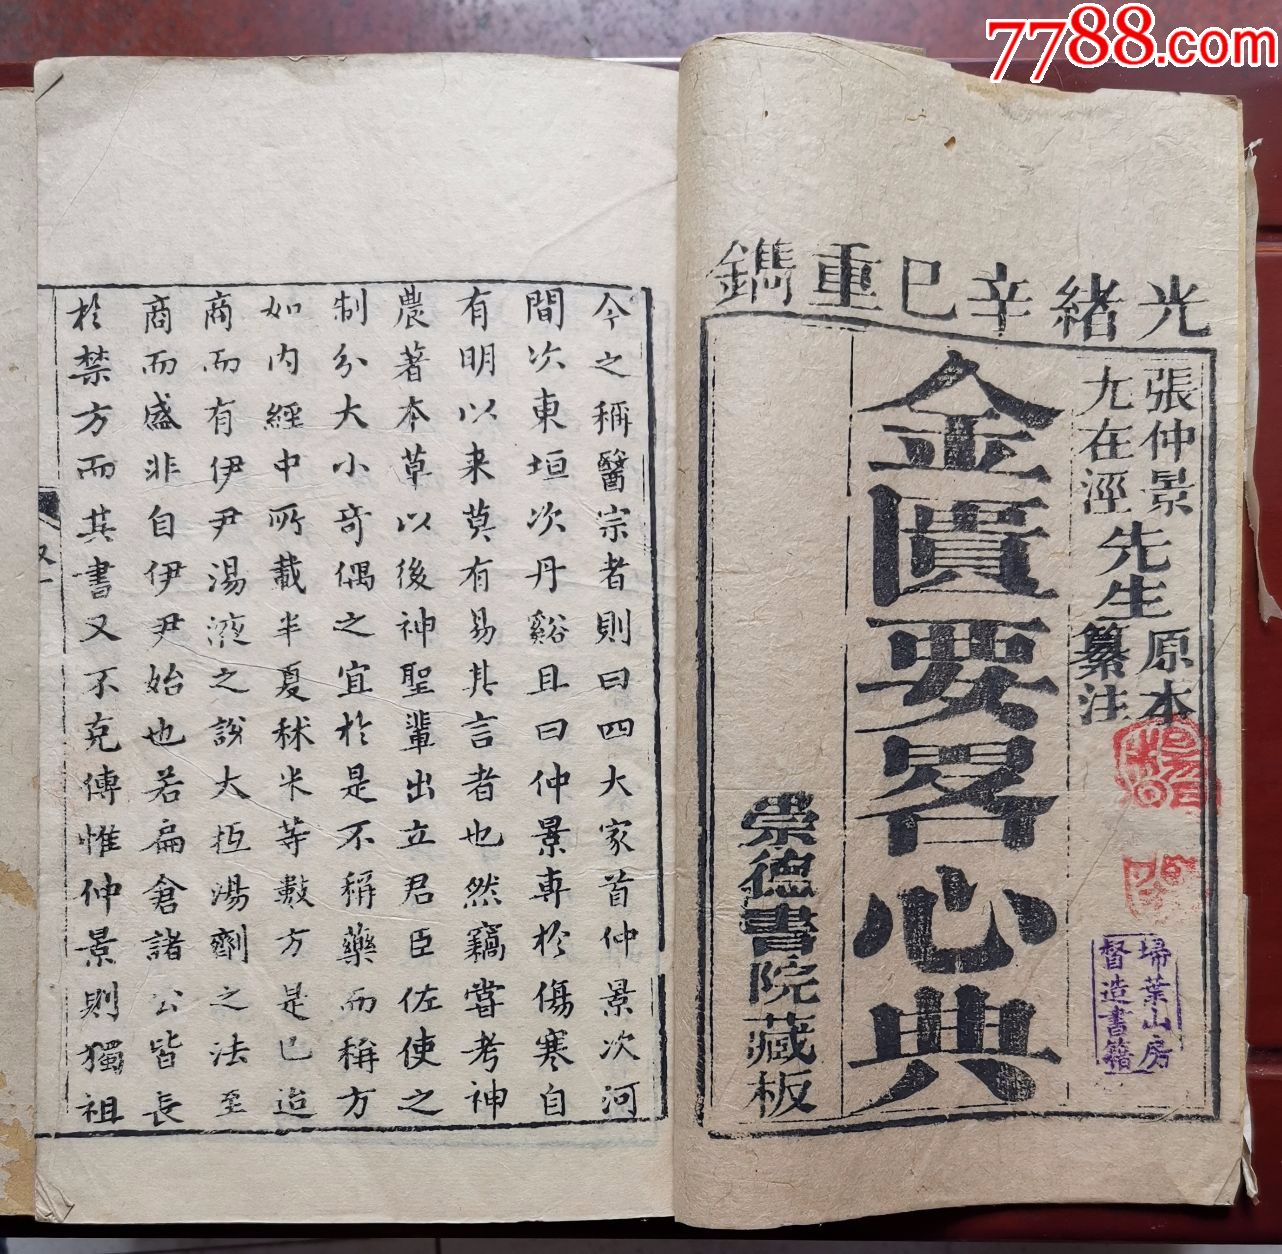 7788.com
光緒辛巳重鐫
張仲景先生原本
尤在涇先生纂注
金匱要畧心典
崇德書院藏板
埽葉山房
督造書籍
今之稱醫宗者則曰四大家首仲景次河
間次東垣次丹谿且曰仲景專於傷寒自
有明以来莫有易其言者也然竊嘗考神
農著本草以後神聖輩出立君臣佐使之
制分大小奇偶之宜於是不稱藥而稱方
如内經中所載半夏秫米等數方是已迨
商而有伊尹湯液之說大抵湯劑之法至
商而盛非自伊尹始也若扁倉諸公皆長
於禁方而其書又不克傳惟仲景則獨祖